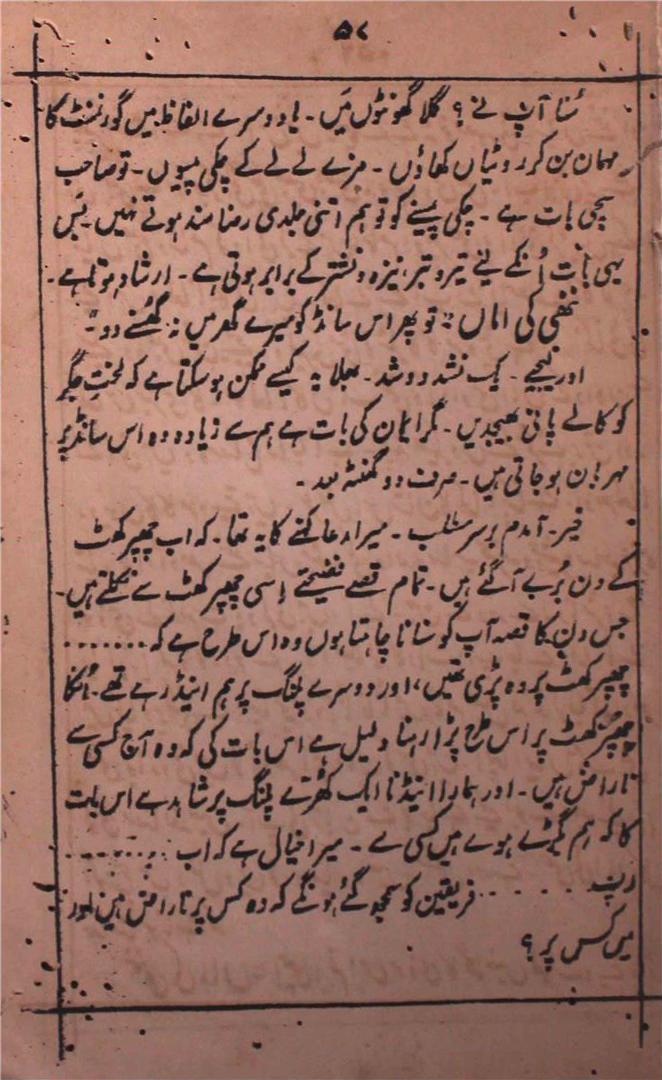 ۵۷
سُنا آپ نے ؟ گلا گھونٹوں میَں ۔ یا دوسرے الفاظ میں گورنمنٹ کا
مہمان بن کر روٹیاں کھاؤں ۔ مزے لے لے کے چکی پیسوں ۔ تو صاحب
سچی بات ہے ۔ چکی پیسنے کو تو ہم اتنی جلدی رضا مند ہوتے نہیں ۔ بَس
یہی بات اُنکے لئے تیر و تبر، نیزہ و نشتر کے برابر ہوتی ہے ۔ ارشاد ہوتا ہے ۔
ننھی کی اماں : تو پھر اس سانڈ کو میرے گھر میں نہ گُھسنے دو "۔
اور لیجیے ۔ یک نشد دو شد ۔ بھلا یہ کیسے ممکن ہو سکتا ہے کہ لختِ جگر
کو کالے پانی بھیجدیں ۔ مگر ایمان کی بات ہے ہم سے زیادہ وہ اس سانڈ پر
مہربان ہو جاتی ہیں ۔ صرف دو گھنٹہ بعد ۔
خیر ۔ آمدم برسر مطلب ۔ میرا مدعا کہنے کا یہ تھا ۔ کہ اب چھپر کھٹ
کے دن بُرے آگئے ہیں ۔ تمام قصے فضیحتے اِسی چھپر کھٹ سے نکلتے ہیں ۔
جس دن کا قصہ آپ کو سنانا چاہتا ہوں وہ اس طرح ہے کہ . . . . . . .
چھپر کھٹ پر وہ پڑی تھیں، اور دوسرے پلنگ پر ہم اینڈ رہے تھے ۔ اُنکا
چھپر کھٹ پر اس طرح پڑا رہنا دلیل ہے اس بات کی کہ وہ آج کسی سے
ناراض ہیں ۔ اور ہمارا اینڈنا ایک کھُرّے پلنگ پر شاہد ہے اس بات
کا کہ ہم بگڑے ہوے ہیں کسی سے ۔ میرا خیال ہے کہ اب . . . . . . .
. . . . . . . فریقین کو سمجھ گئے ہونگے کہ وہ کس پر ناراض ہیں اور
میں کس پر ؟